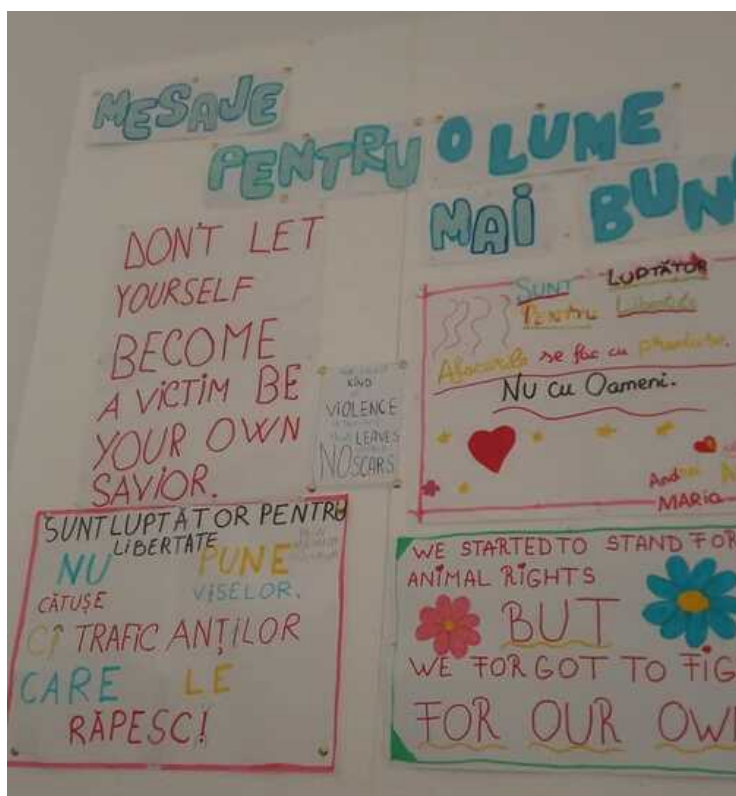 MESAJE
PENTRU O LUME
MAI BUN
DON'T LET
YOURSELF
BECOME
A VICTIM BE
YOUR OWN
SAVIOR.
KIND
VIOLENCE
LEAVES
NO SCARS
SUNT LUPTĂTOR
PENTRU Libertate
Afacerile se fac cu produse.
Nu cu Oameni.
Andrei
MARIA
SUNT LUPTĂTOR PENTRU
LIBERTATE
NU PUNE
CĂTUȘE VISELOR.
CI TRAFICANȚILOR
CARE LE
RĂPESC!
WE STARTED TO STAND FOR
ANIMAL RIGHTS
BUT
WE FORGOT TO FIG
FOR OUR OWN